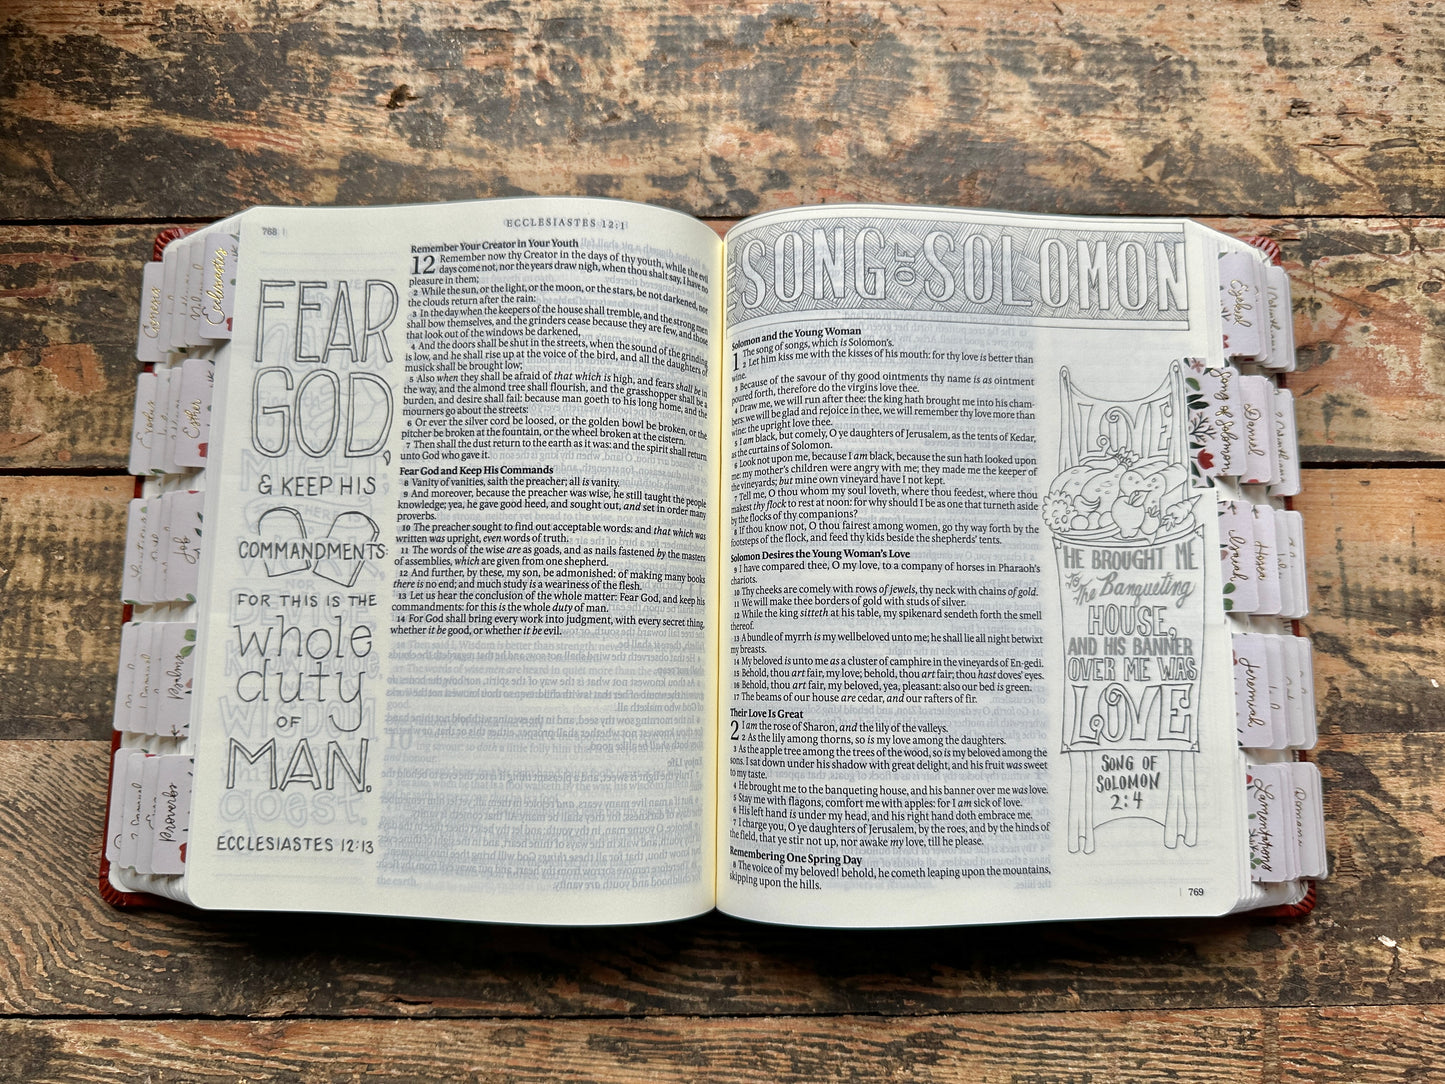 768
ECCLESIASTES 12:1
FEAR
GOD,
& KEEP HIS
COMMANDMENTS:
FOR THIS IS THE
whole
duty
OF
MAN.
ECCLESIASTES 12:13
Remember Your Creator in Your Youth
12 Remember now thy Creator in the days of thy youth, while the evil
days come not, nor the years draw nigh, when thou shalt say, I have no
pleasure in them;
2 While the sun, or the light, or the moon, or the stars, be not darkened, nor
the clouds return after the rain:
3 In the day when the keepers of the house shall tremble, and the strong men
shall bow themselves, and the grinders cease because they are few, and those
that look out of the windows be darkened,
4 And the doors shall be shut in the streets, when the sound of the grinding
is low, and he shall rise up at the voice of the bird, and all the daughters of
musick shall be brought low;
5 Also when they shall be afraid of that which is high, and fears shall be in
the way, and the almond tree shall flourish, and the grasshopper shall be a
burden, and desire shall fail: because man goeth to his long home, and the
mourners go about the streets:
6 Or ever the silver cord be loosed, or the golden bowl be broken, or the
pitcher be broken at the fountain, or the wheel broken at the cistern.
7 Then shall the dust return to the earth as it was: and the spirit shall return
unto God who gave it.
Fear God and Keep His Commands
8 Vanity of vanities, saith the preacher; all is vanity.
9 And moreover, because the preacher was wise, he still taught the people
knowledge; yea, he gave good heed, and sought out, and set in order many
proverbs.
10 The preacher sought to find out acceptable words: and that which was
written was upright, even words of truth.
11 The words of the wise are as goads, and as nails fastened by the masters
of assemblies, which are given from one shepherd.
12 And further, by these, my son, be admonished: of making many books
there is no end; and much study is a weariness of the flesh.
13 Let us hear the conclusion of the whole matter: Fear God, and keep his
commandments: for this is the whole duty of man.
14 For God shall bring every work into judgment, with every secret thing,
whether it be good, or whether it be evil.
SONG OF SOLOMON
Solomon and the Young Woman
1 The song of songs, which is Solomon's.
2 Let him kiss me with the kisses of his mouth: for thy love is better than
wine.
3 Because of the savour of thy good ointments thy name is as ointment
poured forth, therefore do the virgins love thee.
4 Draw me, we will run after thee: the king hath brought me into his cham-
bers: we will be glad and rejoice in thee, we will remember thy love more than
wine: the upright love thee.
5 I am black, but comely, O ye daughters of Jerusalem, as the tents of Kedar,
as the curtains of Solomon.
6 Look not upon me, because I am black, because the sun hath looked upon
me: my mother's children were angry with me; they made me the keeper of
the vineyards; but mine own vineyard have I not kept.
7 Tell me, O thou whom my soul loveth, where thou feedest, where thou
makest thy flock to rest at noon: for why should I be as one that turneth aside
by the flocks of thy companions?
8 If thou know not, O thou fairest among women, go thy way forth by the
footsteps of the flock, and feed thy kids beside the shepherds' tents.
Solomon Desires the Young Woman's Love
9 I have compared thee, O my love, to a company of horses in Pharaoh's
chariots.
10 Thy cheeks are comely with rows of jewels, thy neck with chains of gold.
11 We will make thee borders of gold with studs of silver.
12 While the king sitteth at his table, my spikenard sendeth forth the smell
thereof.
13 A bundle of myrrh is my wellbeloved unto me; he shall lie all night betwixt
my breasts.
14 My beloved is unto me as a cluster of camphire in the vineyards of En-gedi.
15 Behold, thou art fair, my love; behold, thou art fair; thou hast doves' eyes.
16 Behold, thou art fair, my beloved, yea, pleasant: also our bed is green.
17 The beams of our house are cedar, and our rafters of fir.
Their Love Is Great
2 I am the rose of Sharon, and the lily of the valleys.
2 As the lily among thorns, so is my love among the daughters.
3 As the apple tree among the trees of the wood, so is my beloved among the
sons. I sat down under his shadow with great delight, and his fruit was sweet
to my taste.
4 He brought me to the banqueting house, and his banner over me was love.
5 Stay me with flagons, comfort me with apples: for I am sick of love.
6 His left hand is under my head, and his right hand doth embrace me.
7 I charge you, O ye daughters of Jerusalem, by the roes, and by the hinds of
the field, that ye stir not up, nor awake my love, till he please.
Remembering One Spring Day
8 The voice of my beloved! behold, he cometh leaping upon the mountains,
skipping upon the hills.
LOVE
HE BROUGHT ME
To The Banqueting
HOUSE,
AND HIS BANNER
OVER ME WAS
LOVE
SONG OF
SOLOMON
2:4
769
Genesis
Ecclesiastes
Exodus
Esther
Job
Psalms
Proverbs
Ezekiel
Song of Solomon
Daniel
Isaiah
Hosea
Jeremiah
Lamentations
Romans